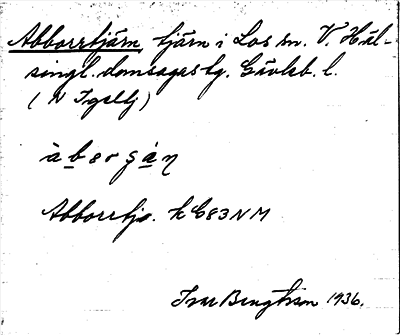 Abborrtjärn, tjärn i Los sn. V. Häl-
singl. domsagas tg. Gävleb. l.
(N Igeltj)
àbσrʂáη
Abborrtjä. k G83NM
Ivar Bengtsson 1936.